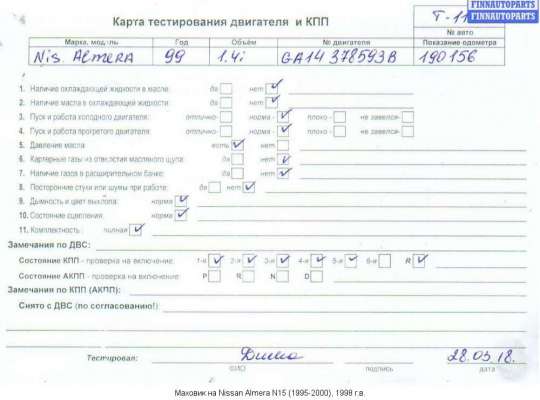 FINNAUTOPARTS
FINNAUTOPARTS
Карта тестирования двигателя и КПП
Т-11
№ авто
Марка, модель Год Объём № двигателя Показание одометра
Nis. Almera 99 1.4i GA14 378593B 190156
1. Наличие охлаждающей жидкости в масле: да нет
2. Наличие масла в охлаждающей жидкости: да нет
3. Пуск и работа холодного двигателя: отлично- норма - плохо - не завелся-
4. Пуск и работа прогретого двигателя: отлично- норма - плохо - не завелся-
5. Давление масла: есть нет
6. Картерные газы из отверстия масляного щупа: да нет
7. Наличие газов в расширительном бачке: да нет
8. Посторонние стуки или шумы при работе: да нет
9. Дымность и цвет выхлопа: норма
10. Состояние сцепления: норма
11. Комплектность: полная
Замечания по ДВС:
Состояние КПП - проверка на включение: 1-я 2-я 3-я 4-я 5-я 6-я R
Состояние АКПП - проверка на включение: P R N D
Замечания по КПП (АКПП):
Снято с ДВС (по согласованию!):
Тестировал: Дима 28.03.18.
ФИО подпись дата
Маховик на Nissan Almera N15 (1995-2000), 1998 г.в.